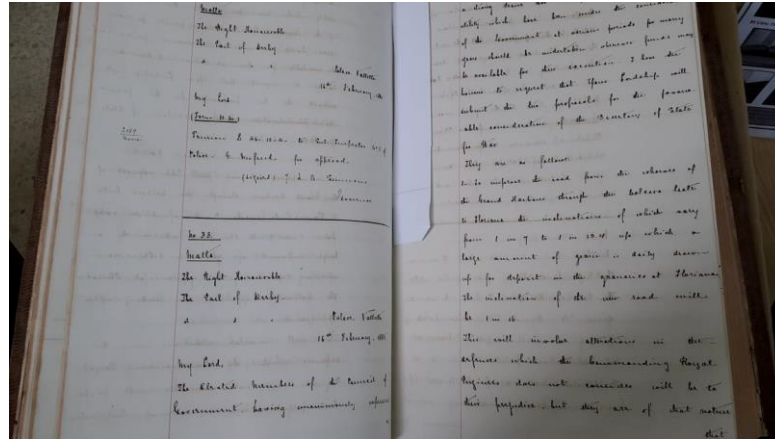 Malta
The Right Honourable
The Earl of Derby
Palace Valletta
16th February, 188
My Lord,
(Form No.
Pension to Sub Inspector of
Police to for approval.
(signed) J. L. A. Simmons
Governor
No 33.
Malta
The Right Honourable
The Earl of Derby
Palace Valletta
16th February, 188
My Lord,
The Elected Members of the Council of
Government having unanimously
utility which have been under the
of the Government at various periods for many
years should be undertaken whenever funds may
be available for their execution. I have the
honour to request that Your Lordship will
submit the proposals for the favour-
able consideration of the Secretary of State
for War
They are as follows:
to improve the road from the wharves of
the Grand Harbour through the Calcara Gate
to Floriana the inclinations of which vary
from 1 in 7 to 1 in 23.4 up which a
large amount of grain is daily drawn
up for deposit in the granaries at Floriana
The inclination of the new road will
be 1 in
This will involve alterations in the
defences which the Commanding Royal
Engineer does not consider will be to
their prejudice, but they are of that nature
that